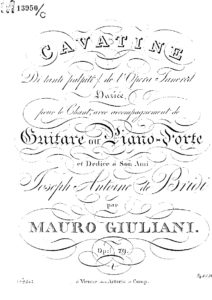 13950/C
CAVATINE
Di tanti palpiti de l'Opera Tancred
Variée
pour le Chant, avec accompagnement de
Guitare ou Piano-Forte
et Dediée à Son Ami
Joseph Antoine de Bridi
par
MAURO GIULIANI.
Op. 79.
à Vienne chez Artaria et Comp.